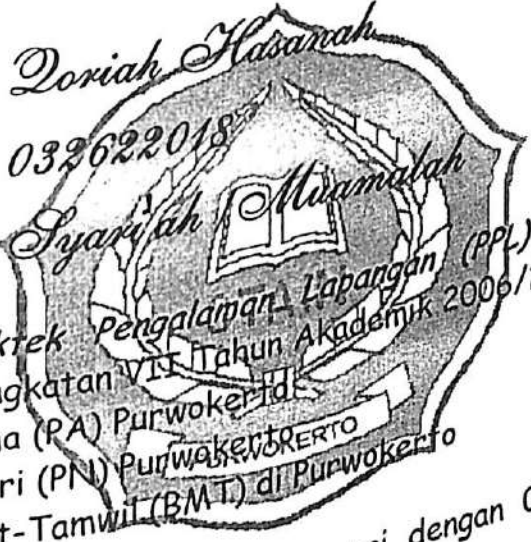 Qoriah Hasanah
032622018
Syari'ah / Muamalah
Pengalaman Lapangan (PPL)
ngkatan VII Tahun Akademik 2006/
(PA) Purwokerto
ri (PN) Purwokerto
t-Tamwil (BMT) di Purwokerto
dengan
PURWOKERTO